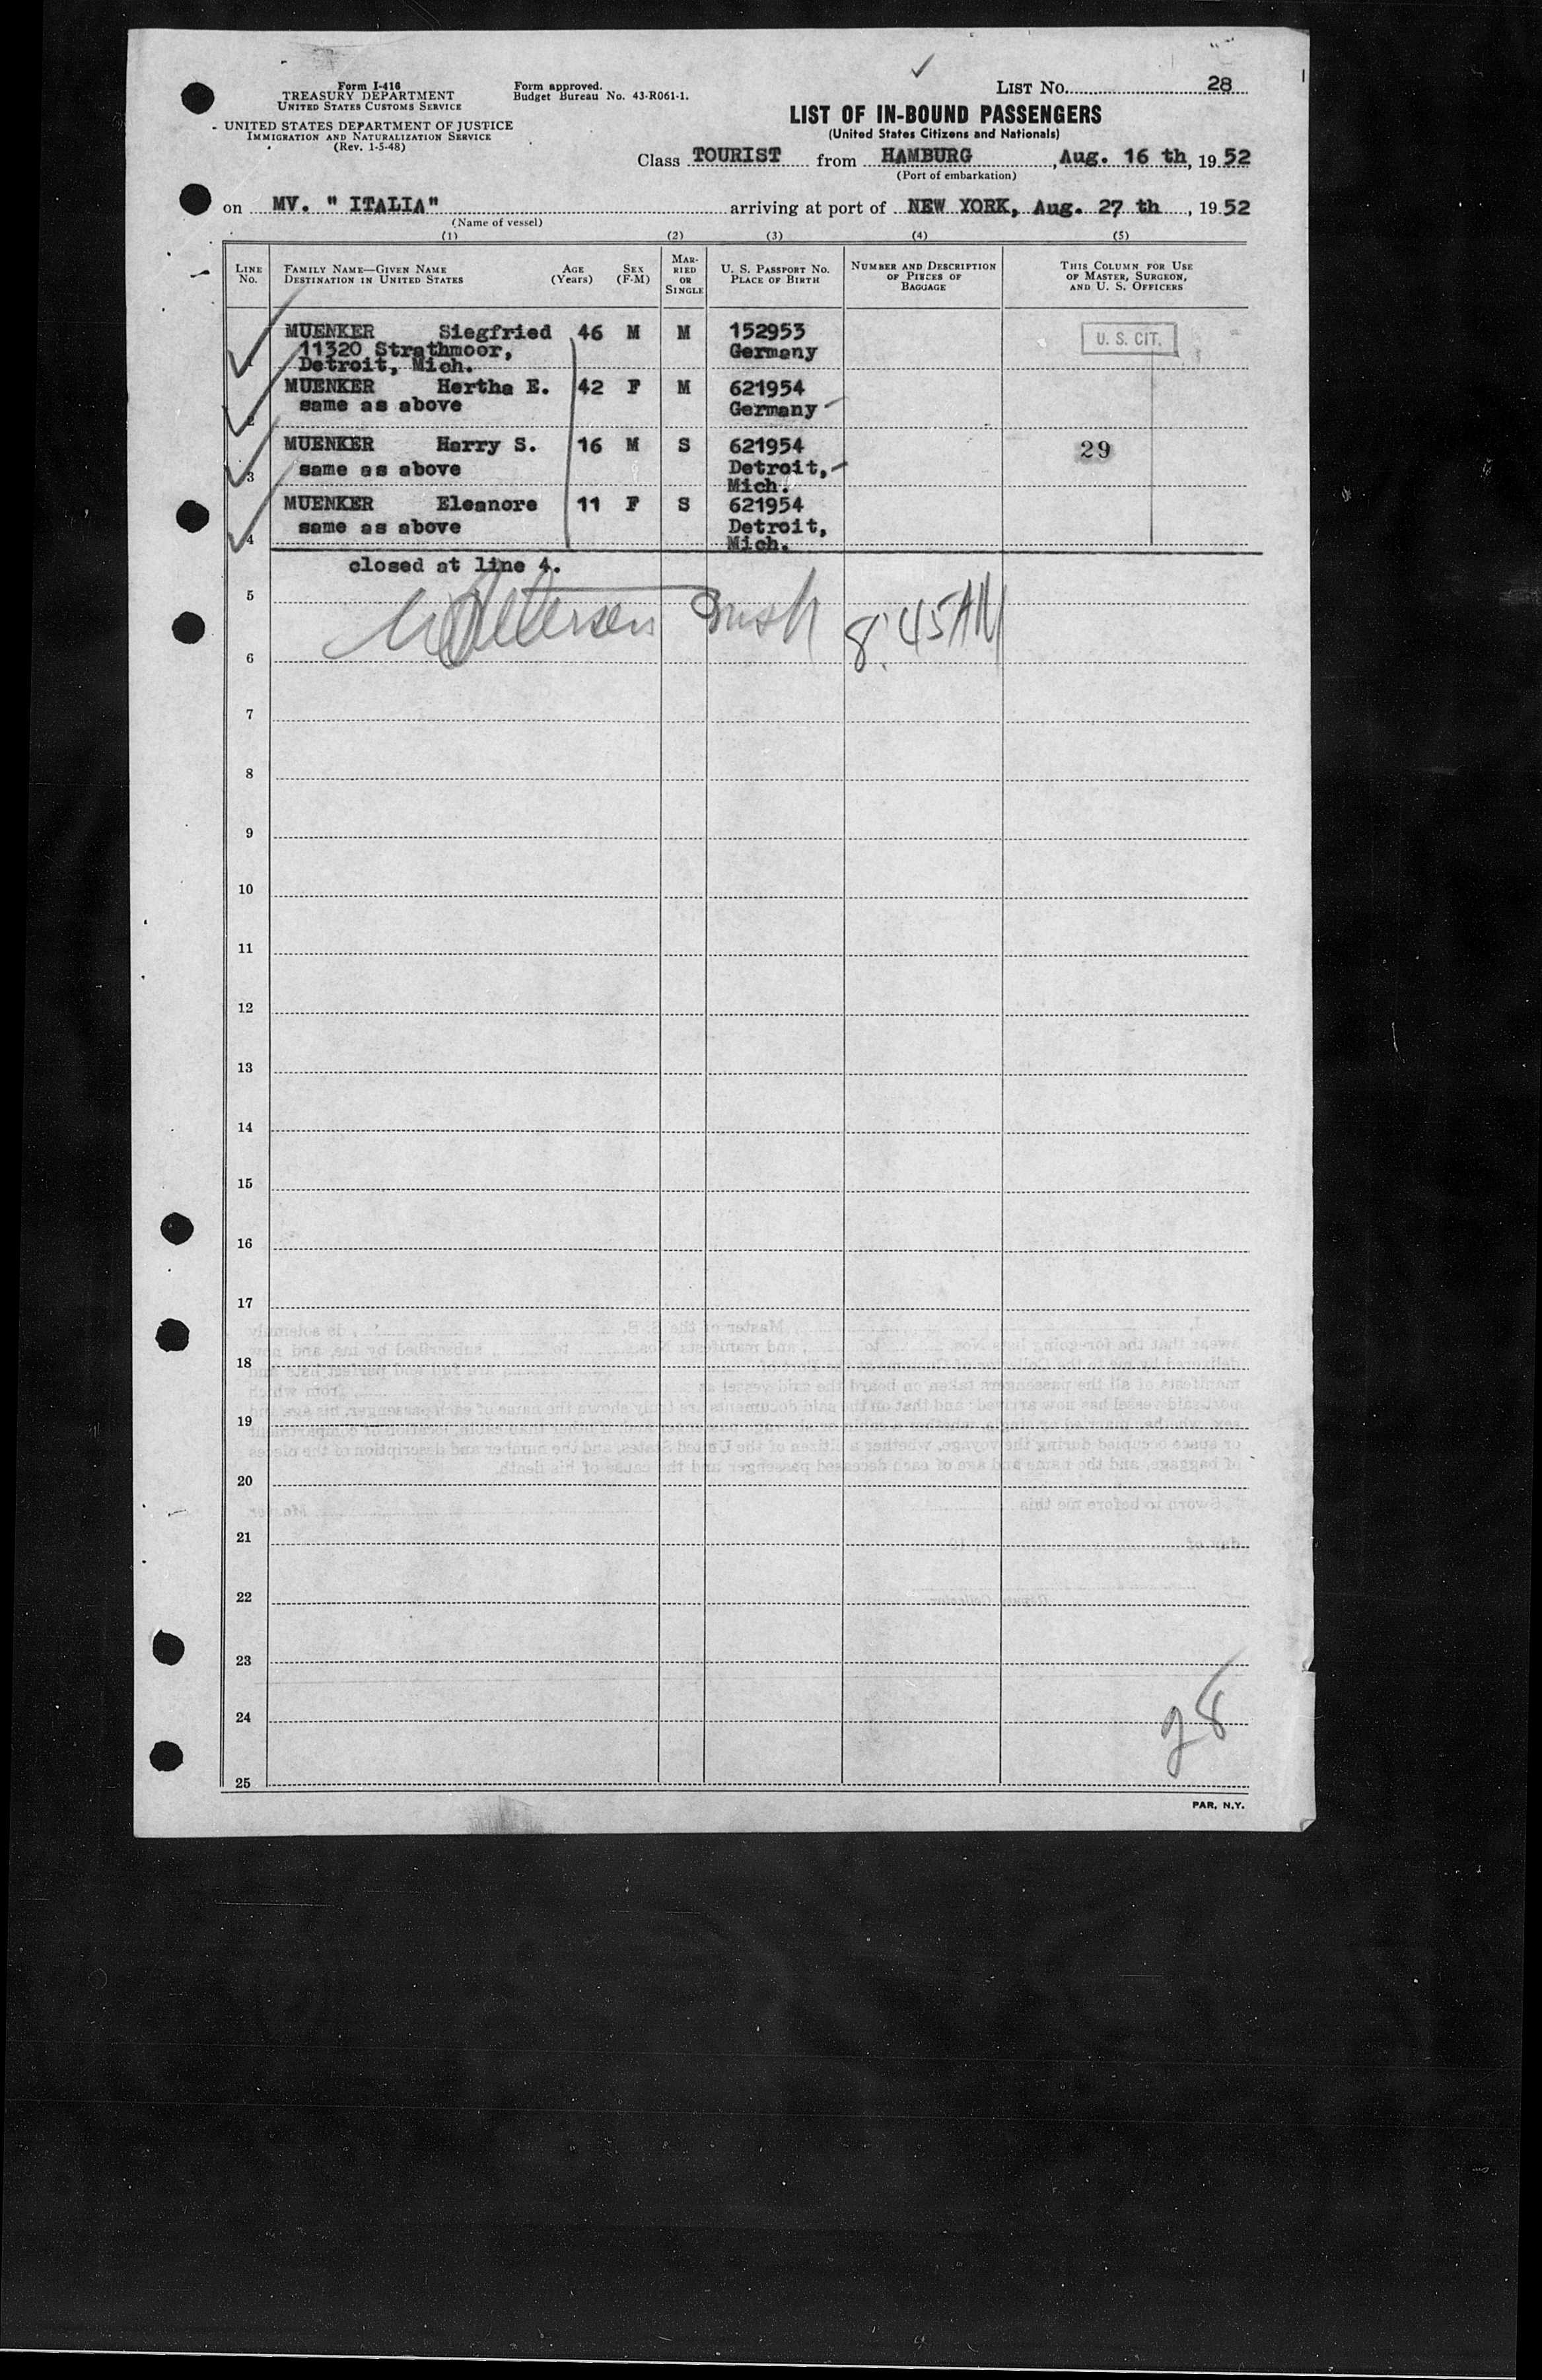 Form I-416
TREASURY DEPARTMENT
UNITED STATES CUSTOMS SERVICE
UNITED STATES DEPARTMENT OF JUSTICE
IMMIGRATION AND NATURALIZATION SERVICE
(Rev. 1-5-48)
Form approved.
Budget Bureau No. 43-R061-1.
LIST No. 28
LIST OF IN-BOUND PASSENGERS
(United States Citizens and Nationals)
Class TOURIST from HAMBURG, Aug. 16 th, 19 52
(Port of embarkation)
on MV. " ITALIA" arriving at port of NEW YORK, Aug. 27 th, 19 52
(Name of vessel)
(1) (2) (3) (4) (5)
LINE No.
FAMILY NAME—GIVEN NAME
DESTINATION IN UNITED STATES
AGE (Years)
SEX (F-M)
MARRIED OR SINGLE
U. S. PASSPORT No.
PLACE OF BIRTH
NUMBER AND DESCRIPTION OF PIECES OF BAGGAGE
THIS COLUMN FOR USE OF MASTER, SURGEON, AND U. S. OFFICERS
1 MUENKER Siegfried 46 M M 152953 U. S. CIT.
11320 Strathmoor, Germany
Detroit, Mich.
2 MUENKER Hertha E. 42 F M 621954
same as above Germany
3 MUENKER Harry S. 16 M S 621954 29
same as above Detroit,
Mich.
4 MUENKER Eleanore 11 F S 621954
same as above Detroit,
Mich.
closed at line 4.
8:45 AM
5
6
7
8
9
10
11
12
13
14
15
16
17
18
19
20
21
22
23
24
28
25
PAR. N.Y.